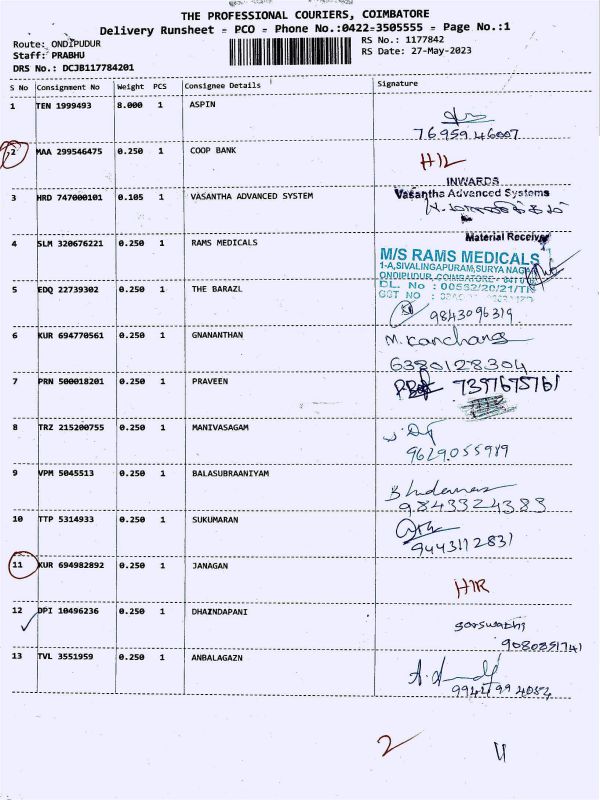 THE PROFESSIONAL COURIERS, COIMBATORE
Delivery Runsheet - PCO - Phone No.:0422-3505555 - Page No.:1
Route: ONDIPUDUR
RS No.: 1177842
Staff: PRABHU
RS Date: 27-May-2023
DRS No.: DCJB117784201
S No Consignment No Weight PCS Consignee Details Signature
1 TEN 1999493 8.000 1 ASPIN
76959 46007
2 MAA 299546475 0.250 1 COOP BANK
INWARDS
3 HRD 747000101 0.105 1 VASANTHA ADVANCED SYSTEM Vasantha Advanced Systems
Material Receiver
4 SLM 320676221 0.250 1 RAMS MEDICALS
M/S RAMS MEDICALS
1-A,SIVALINGAPURAM,SURYA NAGAR
ONDIPUDUR, COIMBATORE
DL. No : 00532/20/21/TN
GST NO :
5 EDQ 22739302 0.250 1 THE BARAZL
9843096319
6 KUR 694770561 0.250 1 GNANANTHAN M. Kanchana
6380128304
7 PRN 500018201 0.250 1 PRAVEEN 7397675761
8 TRZ 215200755 0.250 1 MANIVASAGAM
9629055919
9 VPM 5045513 0.250 1 BALASUBRAANIYAM
9843324383
10 TTP 5314933 0.250 1 SUKUMARAN
9443112831
11 KUR 694982892 0.250 1 JANAGAN
12 DPI 10496236 0.250 1 DHAINDAPANI
9080851741
13 TVL 3551959 0.250 1 ANBALAGAZN
2 11